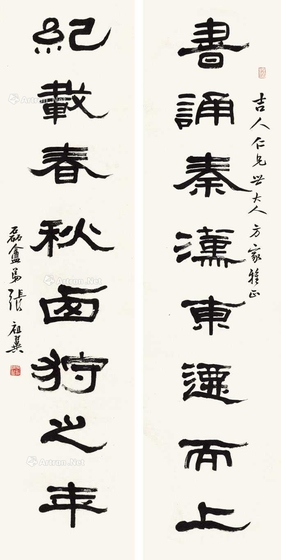 吉人仁兄世大人方家雅正
書誦秦漢東遷而上
紀載春秋卥狩之年
磊盦弟張祖翼
Artron.Net